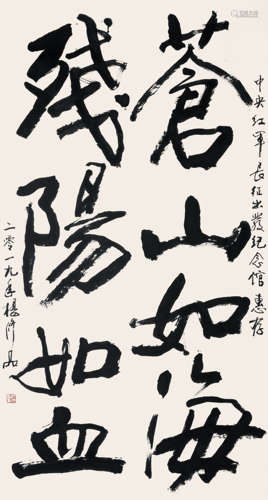 蒼山如海
殘陽如血
中央紅軍長征出發紀念館惠存
二零一九年楊